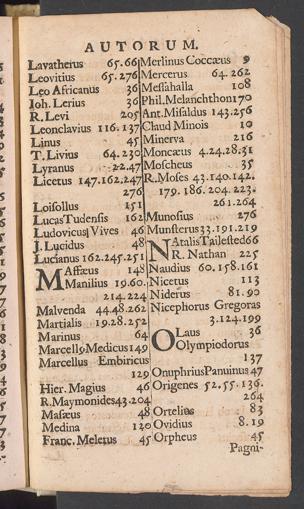 AUTORUM.
Lavatherus 65.66
Leovitius 65.276
Leo Africanus 36
Ioh. Lerius 36
R. Levi 205
Leonclavius 116.137
Linus 45
T. Livius 64.230
Lyranus 22.47
Licetus 147.162.247
276
Loisollus 151
Lucas Tudensis 162
Ludovicus Vives 46
J. Lucidus 48
Lucianus 162.245.251
Maffæus 148
Manilius 19.60.
214.224
Malvenda 44.48.262
Martialis 19.28.252
Marinus 64
Marcell9 Medicus 149
Marcellus Embiricus
129
Hier. Magius 46
R. Maymonides 43.204
Masæus 48
Medina 120
Franc. Meletus 45
Merlinus Coccæus 9
Mercerus 64.262
Messahalla 108
Phil. Melanchthon 170
Ant. Misaldus 143.256
Claud Minois 10
Minerva 216
Moncæus 4.24.28.31
Moscheus 35
R. Moses 43.140.142.
179.186.204.223.
261.264
Munosius 276
Munsterus 33.191.219
Natalis Tailested 66
R. Nathan 225
Naudius 60.158.161
Nicetus 113
Niderus 81.90
Nicephorus Gregoras
3.124.199
Olaus 36
Olympiodorus
137
Onuphrius Panuinus 47
Origenes 52.55.136.
264
Ortelius 83
Ovidius 8.19
Orpheus 45
Pagni-